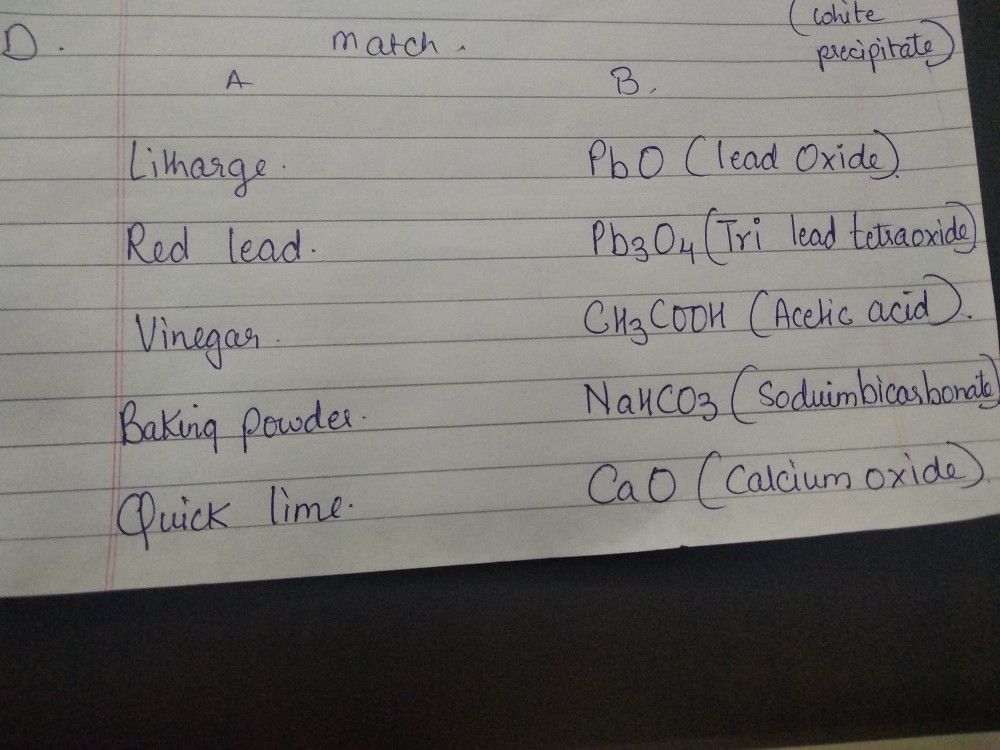 (white
D. match. precipitate)
A B.
Litharge. PbO (lead Oxide).
Red lead. Pb3O4 (Tri lead tetraoxide)
Vinegar. CH3COOH (Acetic acid).
Baking powder. NaHCO3 (Soduimbicarbonate)
Quick lime. CaO (Calcium oxide).